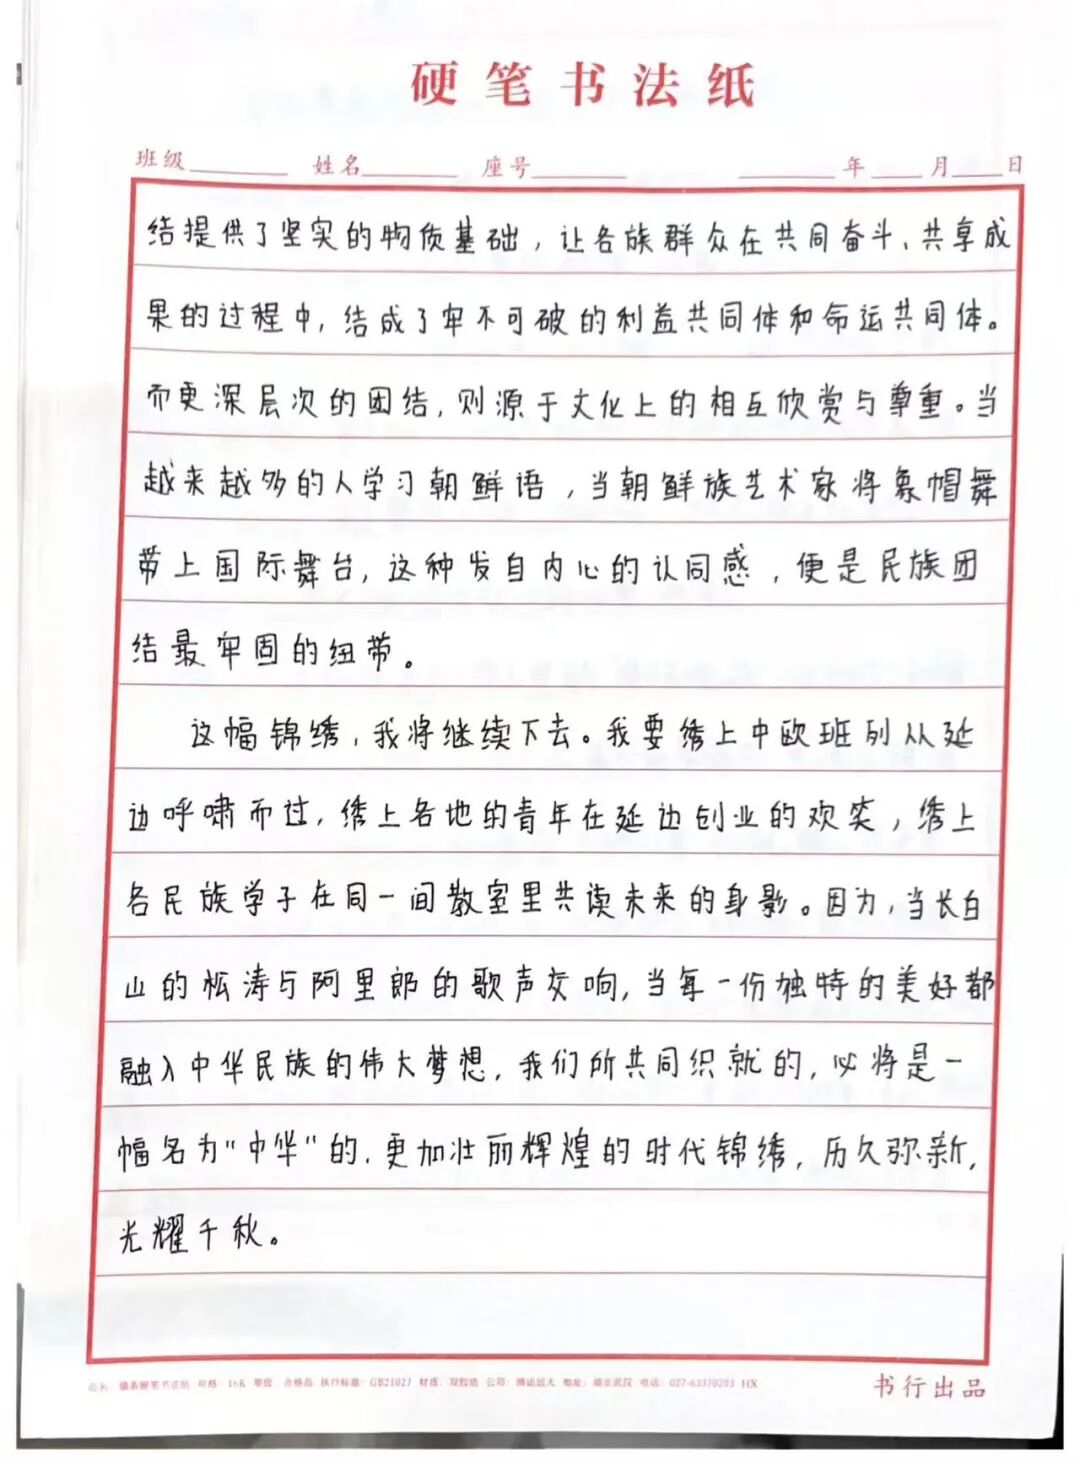 硬笔书法纸
班级 姓名 座号 年 月 日
结提供了坚实的物质基础，让各族群众在共同奋斗、共享成
果的过程中，结成了牢不可破的利益共同体和命运共同体。
而更深层次的团结，则源于文化上的相互欣赏与尊重。当
越来越多的人学习朝鲜语，当朝鲜族艺术家将象帽舞
带上国际舞台，这种发自内心的认同感，便是民族团
结最牢固的纽带。
这幅锦绣，我将继续下去。我要绣上中欧班列从延
边呼啸而过，绣上各地的青年在延边创业的欢笑，绣上
各民族学子在同一间教室里共读未来的身影。因为，当长白
山的松涛与阿里郎的歌声交响，当每一份独特的美好都
融入中华民族的伟大梦想，我们所共同织就的，必将是一
幅名为"中华"的、更加壮丽辉煌的时代锦绣，历久弥新，
光耀千秋。
品名： 硬笔书法纸 规格：16K 等级：合格品 执行标准：GB21027 材质：双胶纸 公司： 地址：湖北武汉 电话：027-63370203 HX
书行出品